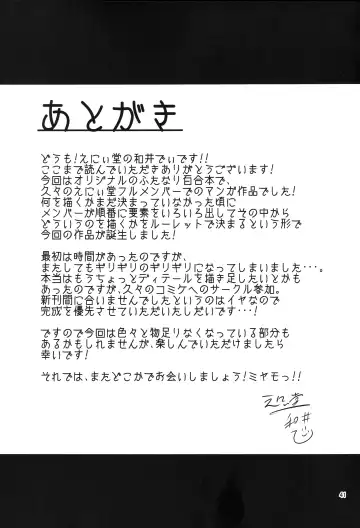 あとがき
どうも!えにぃ堂の和井でぃです!!
ここまで読んでいただきありがとうございます!
今回はオリジナルのふたなり百合本で、
久々のえにぃ堂フルメンバーでのマンガ作品でした!
何を描くかまだ決まっていなかった頃に
メンバーが順番に要素をいろいろ出してその中から
どういうのを描くかをルーレットで決まるという形で
今回の作品が誕生しました!
最初は時間があったのですが、
またしてもギリギリのギリギリになってしまいました・・・。
本当はもうちょっとディテールを描き足したいとかも
あったのですが、久々のコミケへのサークル参加。
新刊間に合いませんでしたというのはイヤなので
完成を優先させていただいたしだいです・・・!
ですので今回は色々と物足りなくなっている部分も
あるかもしれませんが、楽しんでいただけましたら
幸いです!
それでは、またどこかでお会いしましょう!ミヤモっ!!
和井
41